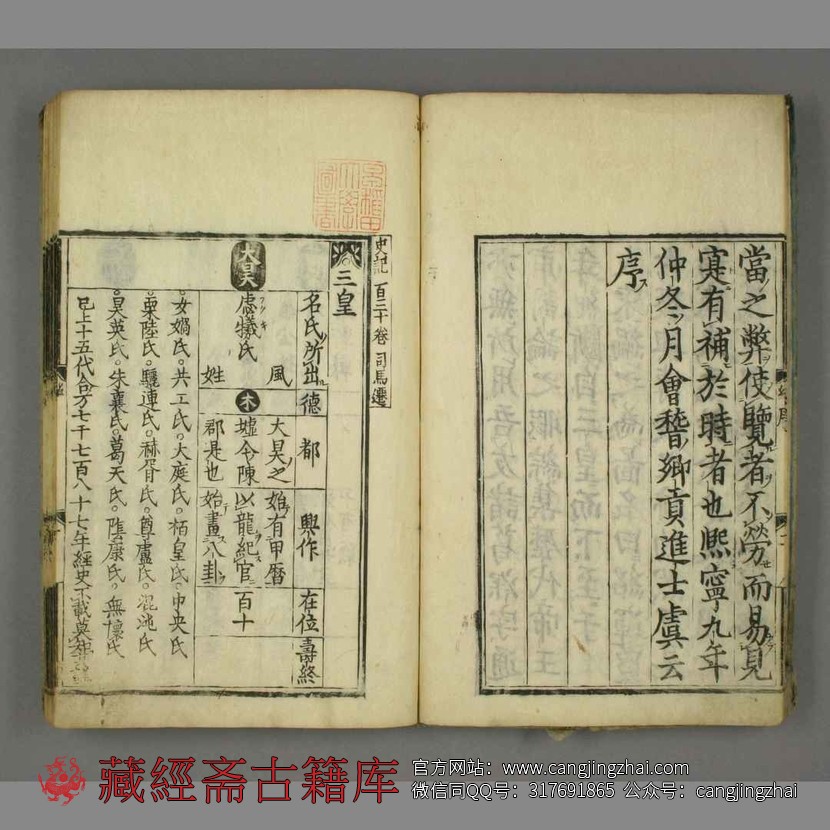 當之弊使覽者不勞而易見
寔有補於時者也熙寧九年
仲冬月會稽卿貢進士虞云
序
史記 百三十卷 司馬遷
三皇
名氏所出 德 都 興作 在位 壽終
太昊
虙犧氏 風姓
フツキ
木
大昊之
墟今陳
郡是也
始有甲曆
以龍紀官
始畫八卦
百十
女媧氏。共工氏。大庭氏。栢皇氏。中央氏
栗陸氏。驪連氏。赫胥氏。尊盧氏。混沌氏
昊英氏。朱襄氏。葛天氏。陰康氏。無懷氏
已上十五代合万七千七百八十七年經史不載莫
藏經斋古籍库
官方网站：www.cangjingzhai.com
微信同QQ号：317691865 公众号：cangjingzhai